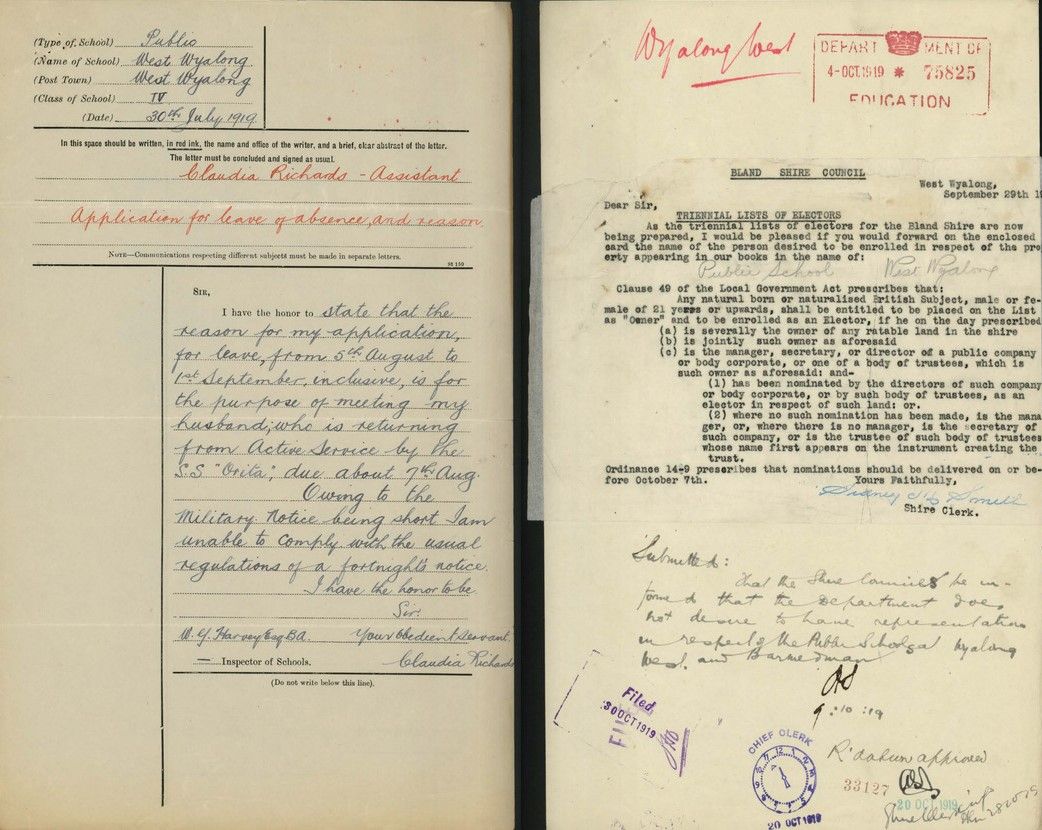 (Type of School) Public
(Name of School) West Wyalong
(Post Town) West Wyalong
(Class of School) IV
(Date) 30th July, 1919.
In this space should be written, in red ink, the name and office of the writer, and a brief, clear abstract of the letter.
The letter must be concluded and signed as usual.
Claudia Richards - Assistant
Application for leave of absence, and reason
NOTE—Communications respecting different subjects must be made in separate letters.
St 159
SIR,
I have the honor to state that the
reason for my application,
for leave, from 5th August to
1st September, inclusive, is for
the purpose of meeting my
husband, who is returning
from Active Service by the
S.S "Orita", due about 7th Aug.
Owing to the
Military Notice being short I am
unable to comply with the usual
regulations of a fortnight's notice.
I have the honor to be
Sir:
W. G. Harvey Esq BA. Your obedient servant
Inspector of Schools. Claudia Richards
(Do not write below this line).
Wyalong West
DEPARTMENT OF
4-OCT.1919 * 75825
EDUCATION
BLAND SHIRE COUNCIL
West Wyalong,
September 29th 19
Dear Sir,
TRIENNIAL LISTS OF ELECTORS
As the triennial lists of electors for the Bland Shire are now
being prepared, I would be pleased if you would forward on the enclosed
card the name of the person desired to be enrolled in respect of the pro
erty appearing in our books in the name of:
Public School West Wyalong
Clause 49 of the Local Government Act prescribes that:
Any natural born or naturalised British Subject, male or fe-
male of 21 years or upwards, shall be entitled to be placed on the List
as "Owner" and to be enrolled as an Elector, if he on the day prescribed
(a) is severally the owner of any ratable land in the shire
(b) is jointly such owner as aforesaid
(c) is the manager, secretary, or director of a public company
or body corporate, or one of a body of trustees, which is
such owner as aforesaid: and-
(1) has been nominated by the directors of such company
or body corporate, or by such body of trustees, as an
elector in respect of such land: or.
(2) where no such nomination has been made, is the mana
ger, or, where there is no manager, is the secretary of
such company, or is the trustee of such body of trustees
whose name first appears on the instrument creating the
trust.
Ordinance 14-9 prescribes that nominations should be delivered on or be-
fore October 7th. Yours Faithfully,
Sidney Smith
Shire Clerk.
Submitted:
That the Shire Councils be in-
formed that the Department does
not desire to have representation
in respect of the Public Schools at Wyalong
West and Barmedman
9.10.19
Filed
30 OCT 1919
CHIEF CLERK
20 OCT 1919
approved
33127
20 OCT 1919